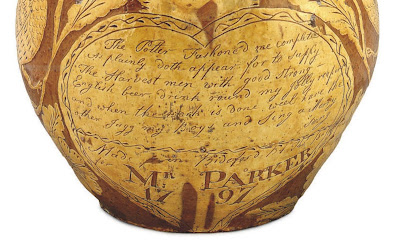 The Potter Fashoned me complete
As plainly doth appear for to supply
The Harvest men with good strong
English beer drink round my jolly
and when the is done will have the
other Jugg my Boys and Sing
Made in Bydeford
Mr PARKER
17 97